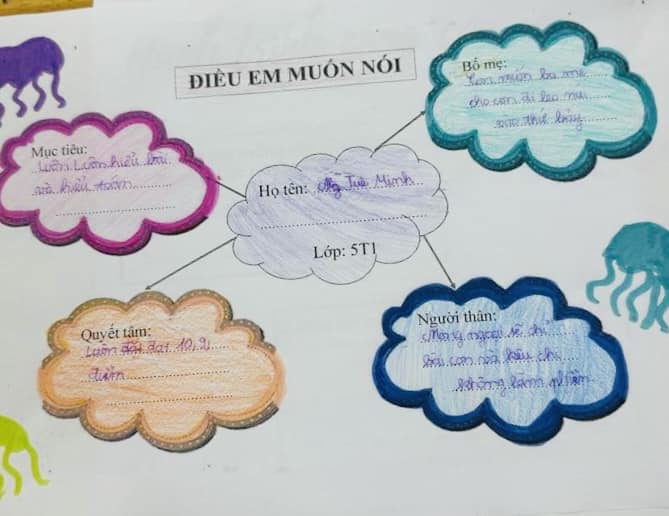 ĐIỀU EM MUỐN NÓI
Bố mẹ:
Con muốn ba mẹ
cho con đi leo núi
vào thứ bảy
Mục tiêu:
Luôn Luôn hiểu bài
và hiểu toán
Họ tên: Ng Tuệ Minh
Lớp: 5T1
Quyết tâm:
Luôn đạt 10, 9
điểm
Người thân:
Mong ngoại sẽ chỉ
bài con và kêu chị
không làm phiền